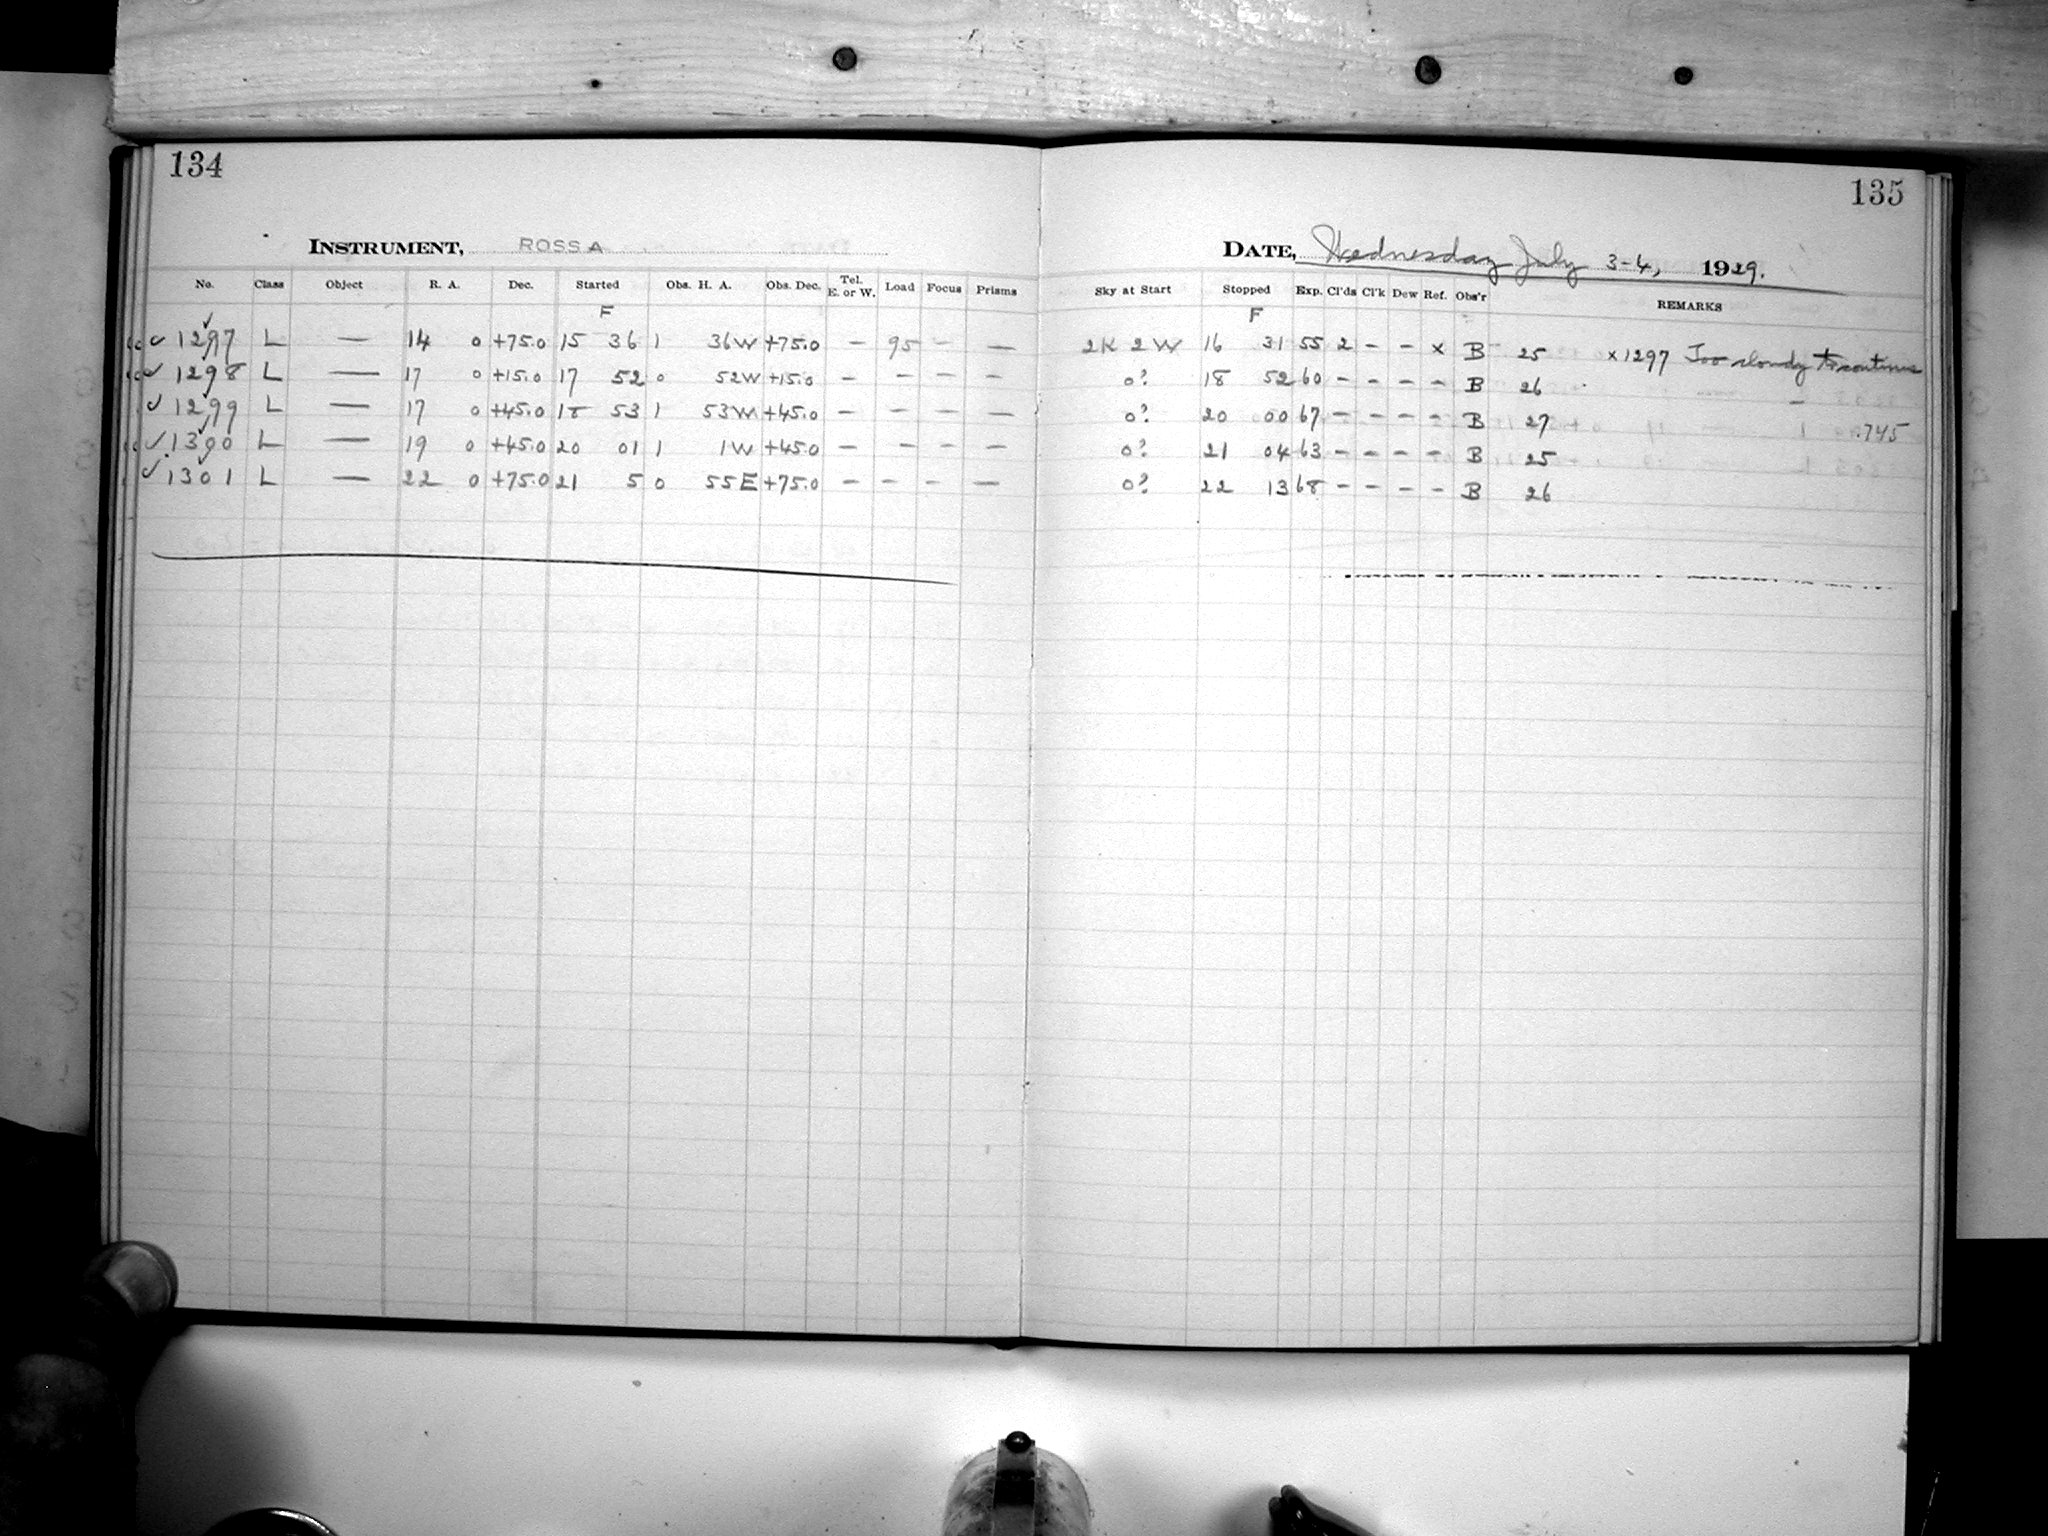 134
INSTRUMENT, ROSS A
No. Class Object R. A. Dec. Started Obs. H. A. Obs. Dec. Tel. E. or W. Load Focus Prisms
F
✓ 1297 L — 14 0 +75.0 15 36 1 36W +75.0 — 95 — —
✓ 1298 L — 17 0 +15.0 17 52 0 52W +15.0 — — — —
✓ 1299 L — 17 0 +45.0 18 53 1 53W +45.0 — — — —
✓ 1300 L — 19 0 +45.0 20 01 1 1W +45.0 — — — —
✓ 1301 L — 22 0 +75.0 21 5 0 55E +75.0 — — — —
135
DATE, Wednesday July 3-4, 1929.
Sky at Start Stopped Exp. Cl'ds Cl'k Dew Ref. Obs'r REMARKS
F
2K 2W 16 31 55 2 - - x B 25 x 1297 Too cloudy to continue
0? 18 52 60 - - - - B 26
0? 20 00 67 - - - - B 27 .745
0? 21 04 63 - - - - B 25
0? 22 13 68 - - - - B 26